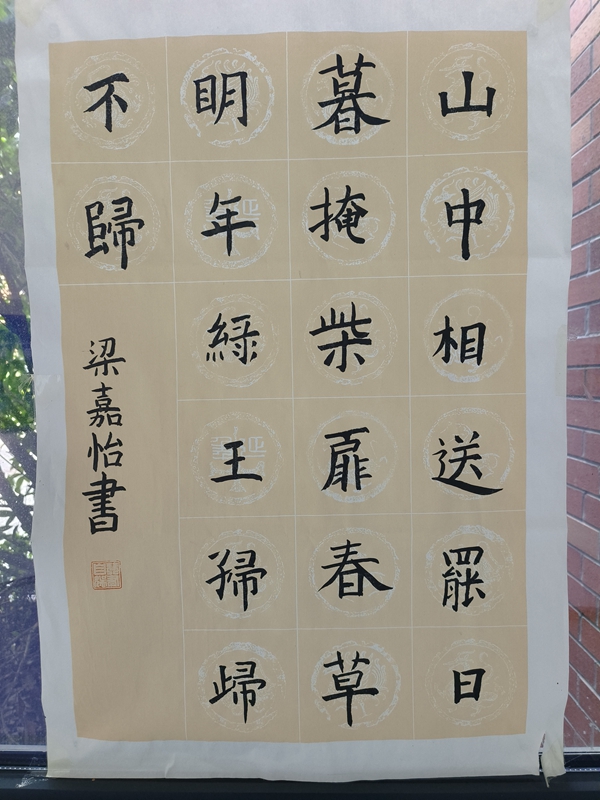 山中相送罷日
暮掩柴扉春草
明年綠王孫歸
不歸
梁嘉怡書